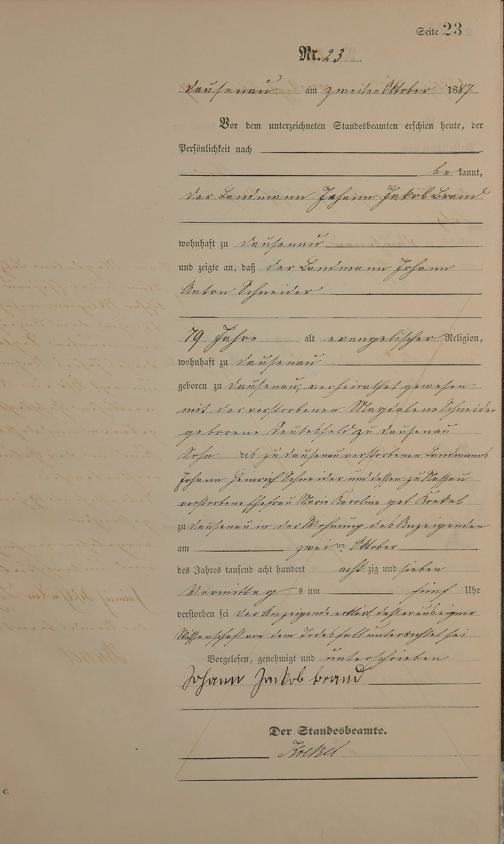 Seite 23
Nr. 23
Dausenau am zweiten Oktober 1887
Vor dem unterzeichneten Standesbeamten erschien heute, der
Persönlichkeit nach
be kannt,
der Landmann Johann Jakob Brand
wohnhaft zu Dausenau
und zeigte an, daß der Landmann Johann
Anton Schneider
79 Jahre alt evangelischer Religion,
wohnhaft zu Dausenau
geboren zu Dausenau, verheirathet gewesen
mit der verstorbenen Magdalene Schneider
geborene zu Dausenau
Sohn des zu Dausenau verstorbenen Landmanns
Johann Heinrich Schneider und dessen zu Nassau
verstorbene Ehefrau Marie Karoline geb. Krekel
zu Dausenau in der Wohnung des Anzeigenden
am zwei ten Oktober
des Jahres tausend acht hundert acht zig und sieben
Vormittag s um fünf Uhr
verstorben sei der Anzeigende erklärt, daß er aus eigner
Wissenschaft von dem Todesfall unterrichtet sei
Vorgelesen, genehmigt und unterschrieben
Johann Jackob brand
Der Standesbeamte.
Krekel
C.